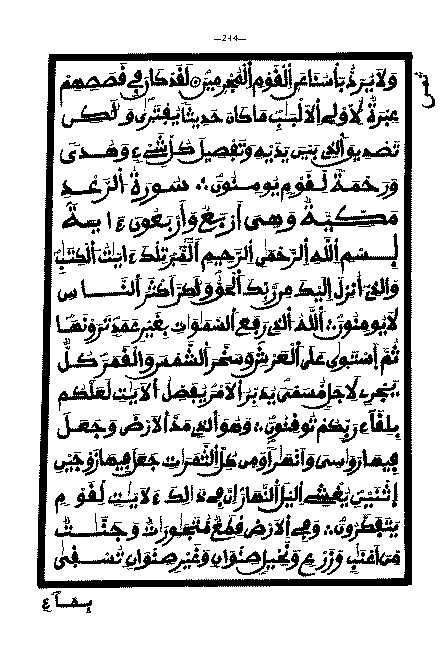 —244—
ثمن
وَلَا يُرَدُّ بَأْسُنَا عَنِ الْقَوْمِ الْمُجْرِمِينَ لَقَدْ كَانَ فِي قَصَصِهِمْ
عِبْرَةٌ لِّأُوْلِي الْأَلْبَٰبِ مَا كَانَ حَدِيثًا يُفْتَرَىٰ وَلَٰكِن
تَصْدِيقَ الَّذِي بَيْنَ يَدَيْهِ وَتَفْصِيلَ كُلِّ شَيْءٍ وَهُدًى
وَرَحْمَةً لِّقَوْمٍ يُومِنُونَ ∴ سُورَةُ الرَّعْدِ
مَكِّيَّةٌ وَهِيَ أَرْبَعٌ وَأَرْبَعُونَ ءَايَةً
بِسْمِ اللَّهِ الرَّحْمَٰنِ الرَّحِيمِ الٓمٓر تِلْكَ ءَايَٰتُ الْكِتَٰبِ
وَالَّذِي أُنزِلَ إِلَيْكَ مِن رَّبِّكَ الْحَقُّ وَلَٰكِنَّ أَكْثَرَ النَّاسِ
لَا يُومِنُونَ ∴ اللَّهُ الَّذِي رَفَعَ السَّمَٰوَاتِ بِغَيْرِ عَمَدٍ تَرَوْنَهَا
ثُمَّ اسْتَوَىٰ عَلَى الْعَرْشِ وَسَخَّرَ الشَّمْسَ وَالْقَمَرَ كُلٌّ
يَجْرِي لِأَجَلٍ مُّسَمًّى يُدَبِّرُ الْأَمْرَ يُفَصِّلُ الْأَيَٰتِ لَعَلَّكُم
بِلِقَآءِ رَبِّكُمْ تُوقِنُونَ ∴ وَهُوَ الَّذِي مَدَّ الْأَرْضَ وَجَعَلَ
فِيهَا رَوَٰسِيَ وَأَنْهَٰرًا وَمِن كُلِّ الثَّمَرَٰتِ جَعَلَ فِيهَا زَوْجَيْنِ
اثْنَيْنِ يُغْشِي الَّيْلَ النَّهَارَ إِنَّ فِي ذَٰلِكَ لَأَيَٰتٍ لِّقَوْمٍ
يَتَفَكَّرُونَ ∴ وَفِي الْأَرْضِ قِطَعٌ مُّتَجَٰوِرَٰتٌ وَجَنَّٰتٌ
مِّنْ أَعْنَٰبٍ وَزَرْعٍ وَنَخِيلٍ صِنْوَانٍ وَغَيْرِ صِنْوَانٍ تُسْقَىٰ
بِمَآءٍ